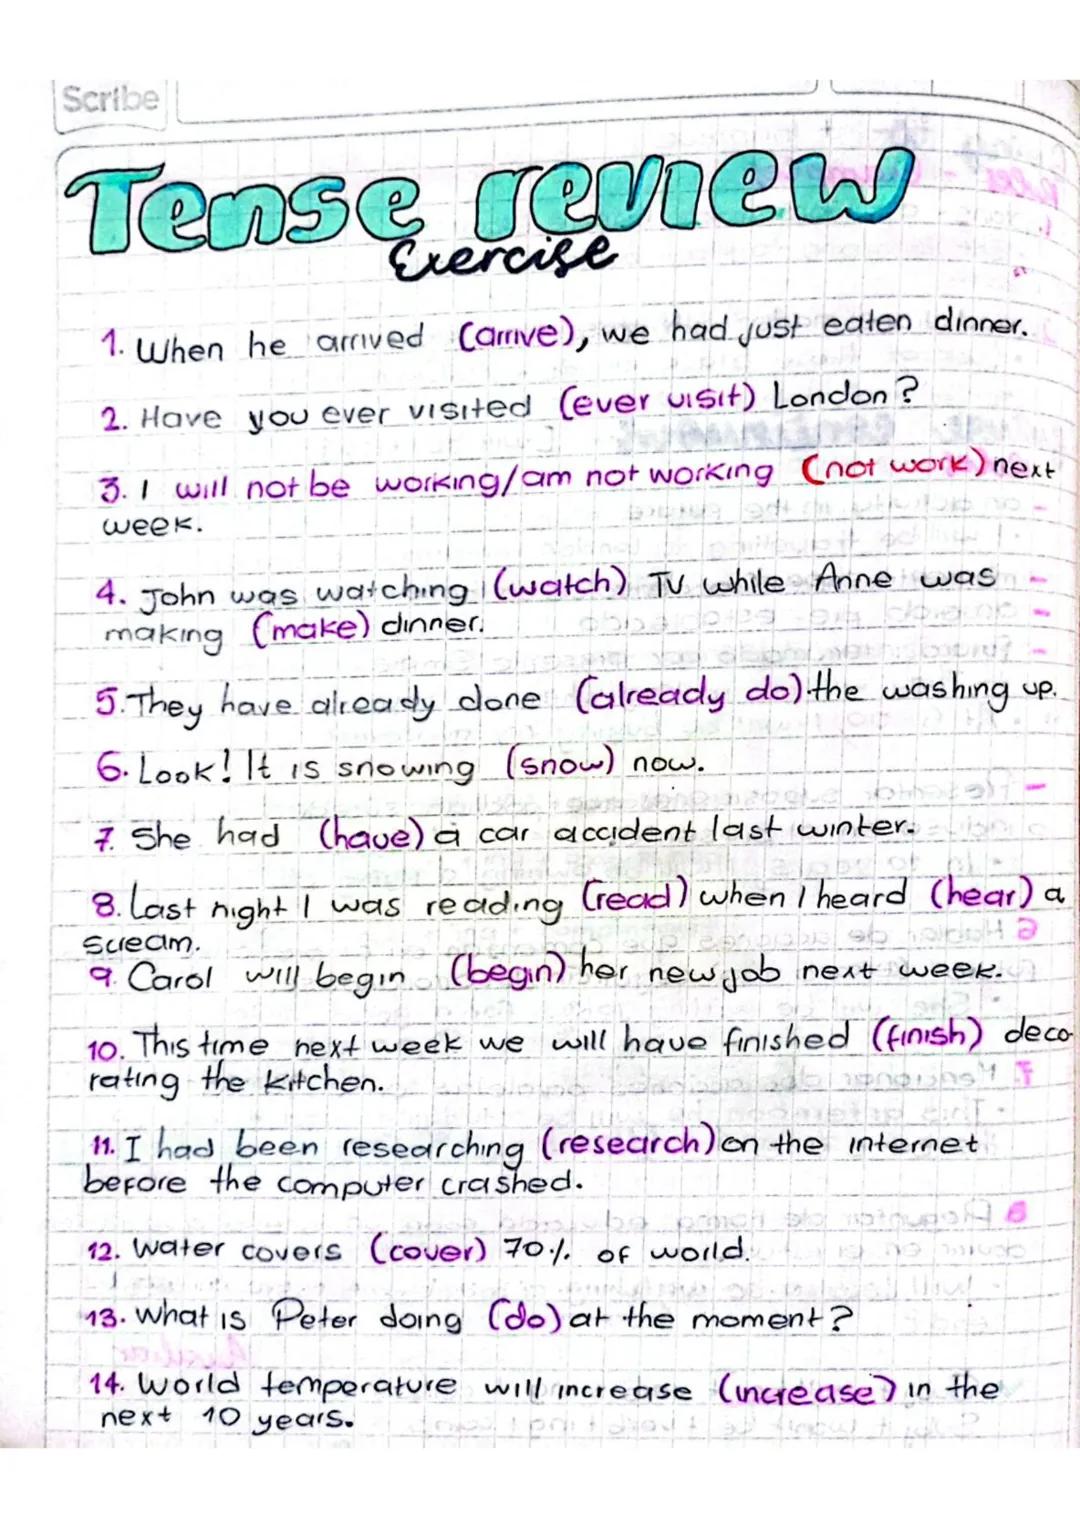 Scribe
Tense review
Exercise
1. When he arrived (arrive), we had just eaten dinner.
2. Have you ever visited (ever visit) London?
3. I will not be working/am not working (not work) next
week.
4. John was watching (watch) TV while Anne was
making (make) dinner.
5. They have already done (already do) the washing up.
6. Look! It is snowing (snow) now.
7. She had (have) a car accident last winter.
8. Last night I was reading (read) when I heard (hear) a
scream.
9. Carol will begin (begin) her new job next week.
10. This time next week we will have finished (finish) deco-
rating the kitchen.
11. I had been researching (research) on the internet
before the computer crashed.
12. Water covers (cover) 70% of world.
13. What is Peter doing (do) at the moment?
14. World temperature will increase (increase) in the
next 10 years.